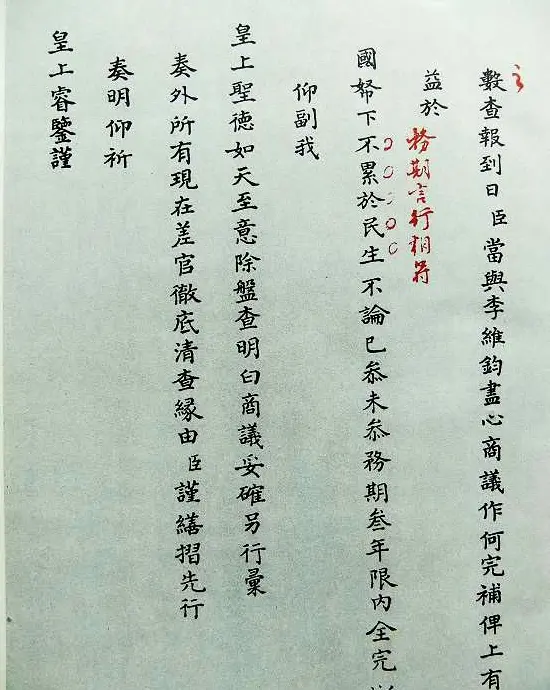 數查報到日臣當與李維鈞盡心商議作何完補俾上有
益於
務期言行相符
國帑下不累於民生不論已叅未叅務期叁年限內全完
仰副我
皇上聖德如天至意除盤查明白商議妥確另行彙
奏外所有現在差官徹底清查緣由臣謹繕摺先行
奏明仰祈
皇上睿鑒謹